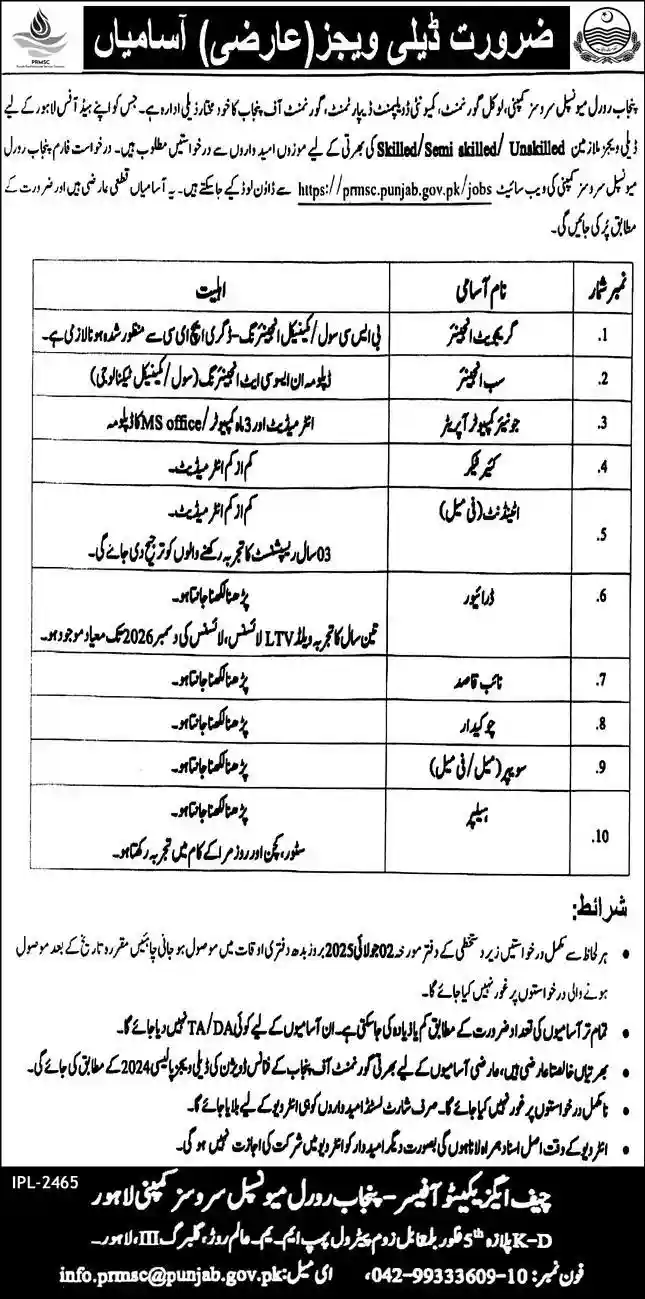 ضرورت ڈیلی ویجز (عارضی) آسامیاں
PRMSC
پنجاب رورل میونسپل سروسز کمپنی، لوکل گورنمنٹ، کمیونٹی ڈویلپمنٹ ڈیپارٹمنٹ، گورنمنٹ آف پنجاب کا خود مختار ذیلی ادارہ ہے۔ جس کو اپنے ہیڈ آفس لاہور کے لیے
ڈیلی ویجز ملازمین Skilled/Semi skilled/ Unskilled کی بھرتی کے لیے موزوں امیدواروں سے درخواستیں مطلوب ہیں۔ درخواست فارم پنجاب رورل
میونسپل سروسز کمپنی کی ویب سائیٹ https://prmsc.punjab.gov.pk/jobs سے ڈاؤن لوڈ کیے جاسکتے ہیں۔ یہ آسامیاں قطعی عارضی ہیں اور ضرورت کے
مطابق پُر کی جائیں گی۔
نمبر شمار نام آسامی اہلیت
.1 گریجویٹ انجینئر بی ایس سی سول/مکینیکل انجینئرنگ- ڈگری ایچ ای سی سے منظور شدہ ہونا لازمی ہے۔
.2 سب انجینئر ڈپلومہ ان ایسوسی ایٹ انجینئرنگ (سول/مکینیکل ٹیکنالوجی)
.3 جونیئر کمپیوٹر آپریٹر انٹرمیڈیٹ اور 3 ماہ کمپیوٹر/MS office کا ڈپلومہ
.4 کیئر ٹیکر کم از کم انٹرمیڈیٹ۔
.5 اٹینڈنٹ (فی میل) کم از کم انٹرمیڈیٹ۔
03 سال ریسپشنسٹ کا تجربہ رکھنے والوں کو ترجیح دی جائے گی۔
.6 ڈرائیور پڑھنا لکھنا جانتا ہو۔
تین سال کا تجربہ ویلڈ LTV لائسنس، لائسنس کی دسمبر 2026 تک معیاد موجود ہو۔
.7 نائب قاصد پڑھنا لکھنا جانتا ہو۔
.8 چوکیدار پڑھنا لکھنا جانتا ہو۔
.9 سویپر (میل/فی میل) پڑھنا لکھنا جانتا ہو۔
.10 ہیلپر پڑھنا لکھنا جانتا ہو۔
سٹور، کچن اور روزمرا کے کام میں تجربہ رکھتا ہو۔
شرائط:
• ہر لحاظ سے مکمل درخواستیں زیر دستخطی کے دفتر مورخہ 02 جولائی 2025 بروز بدھ دفتری اوقات میں موصول ہو جانی چاہئیں مقررہ تاریخ کے بعد موصول
ہونے والی درخواستوں پر غور نہیں کیا جائے گا۔
• تمام تر آسامیوں کی تعداد ضرورت کے مطابق کم یا زیادہ کی جاسکتی ہے۔ ان آسامیوں کے لیے کوئی TA/DA نہیں دیا جائے گا۔
• بھرتیاں خالصتا عارضی ہیں، عارضی آسامیوں کے لیے بھرتی گورنمنٹ آف پنجاب کے فنانس ڈویژن کی ڈیلی ویجز پالیسی 2024 کے مطابق کی جائے گی۔
• نامکمل درخواستوں پر غور نہیں کیا جائے گا۔ صرف شارٹ لسٹڈ امیدواروں کو ہی انٹرویو کے لیے بلایا جائے گا۔
• انٹرویو کے وقت اصل اسناد ہمراہ لانا ہوں گی بصورت دیگر امیدوار کو انٹرویو میں شرکت کی اجازت نہیں ہو گی۔
IPL-2465
چیف ایگزیکیٹو آفیسر - پنجاب رورل میونسپل سروسز کمپنی لاہور
K-D پلازہ 5th فلور بلمقابل زوم پیٹرول پمپ ایم۔ ایم۔ عالم روڈ، گلبرگ III، لاہور۔
فون نمبر: 10-042-99333609، ای میل: info.prmsc@punjab.gov.pk